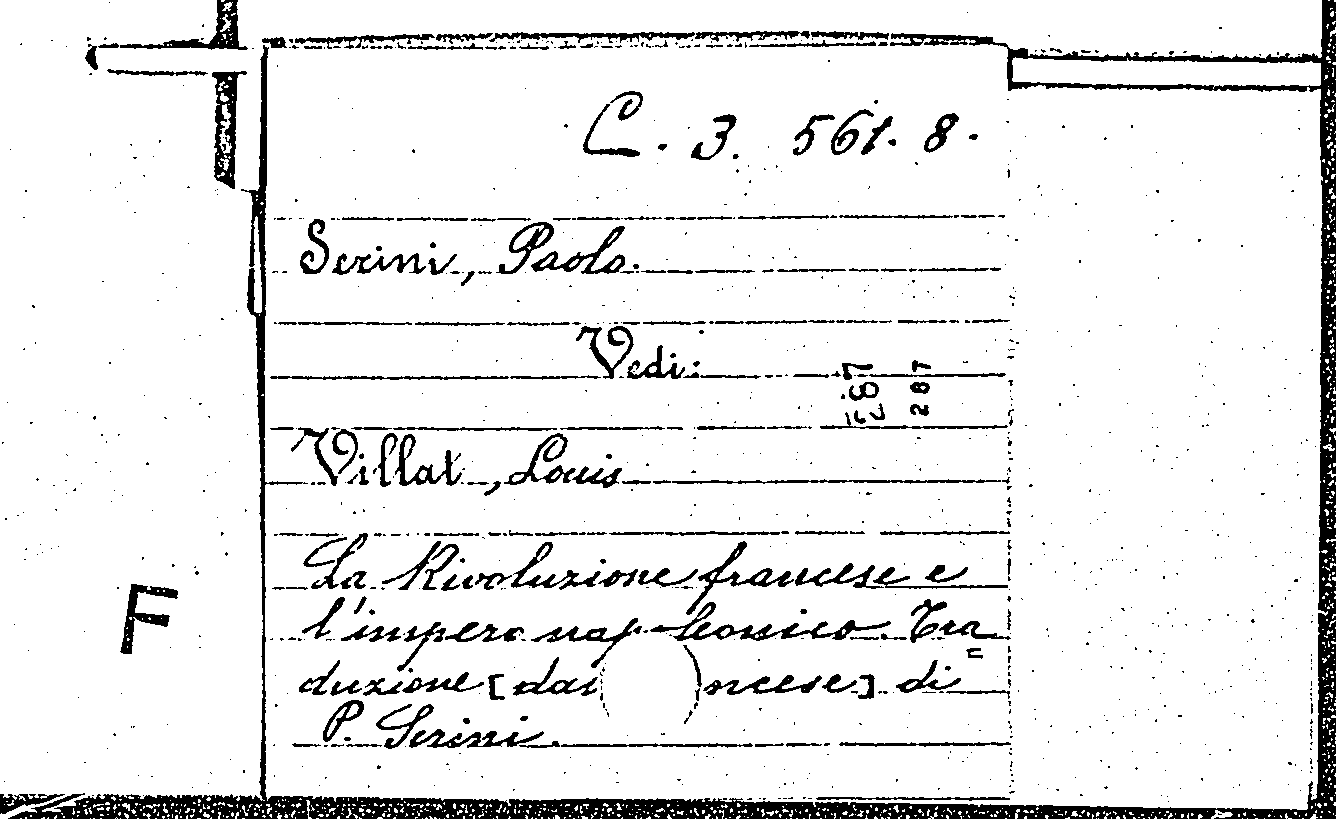 C. 3. 561. 8.
Serini, Paolo.
Vedi:
287
Villat, Louis
La Rivoluzione francese e
l'impero napoleonico. Tra=
duzione [dal ncese] di
P. Serini.
F